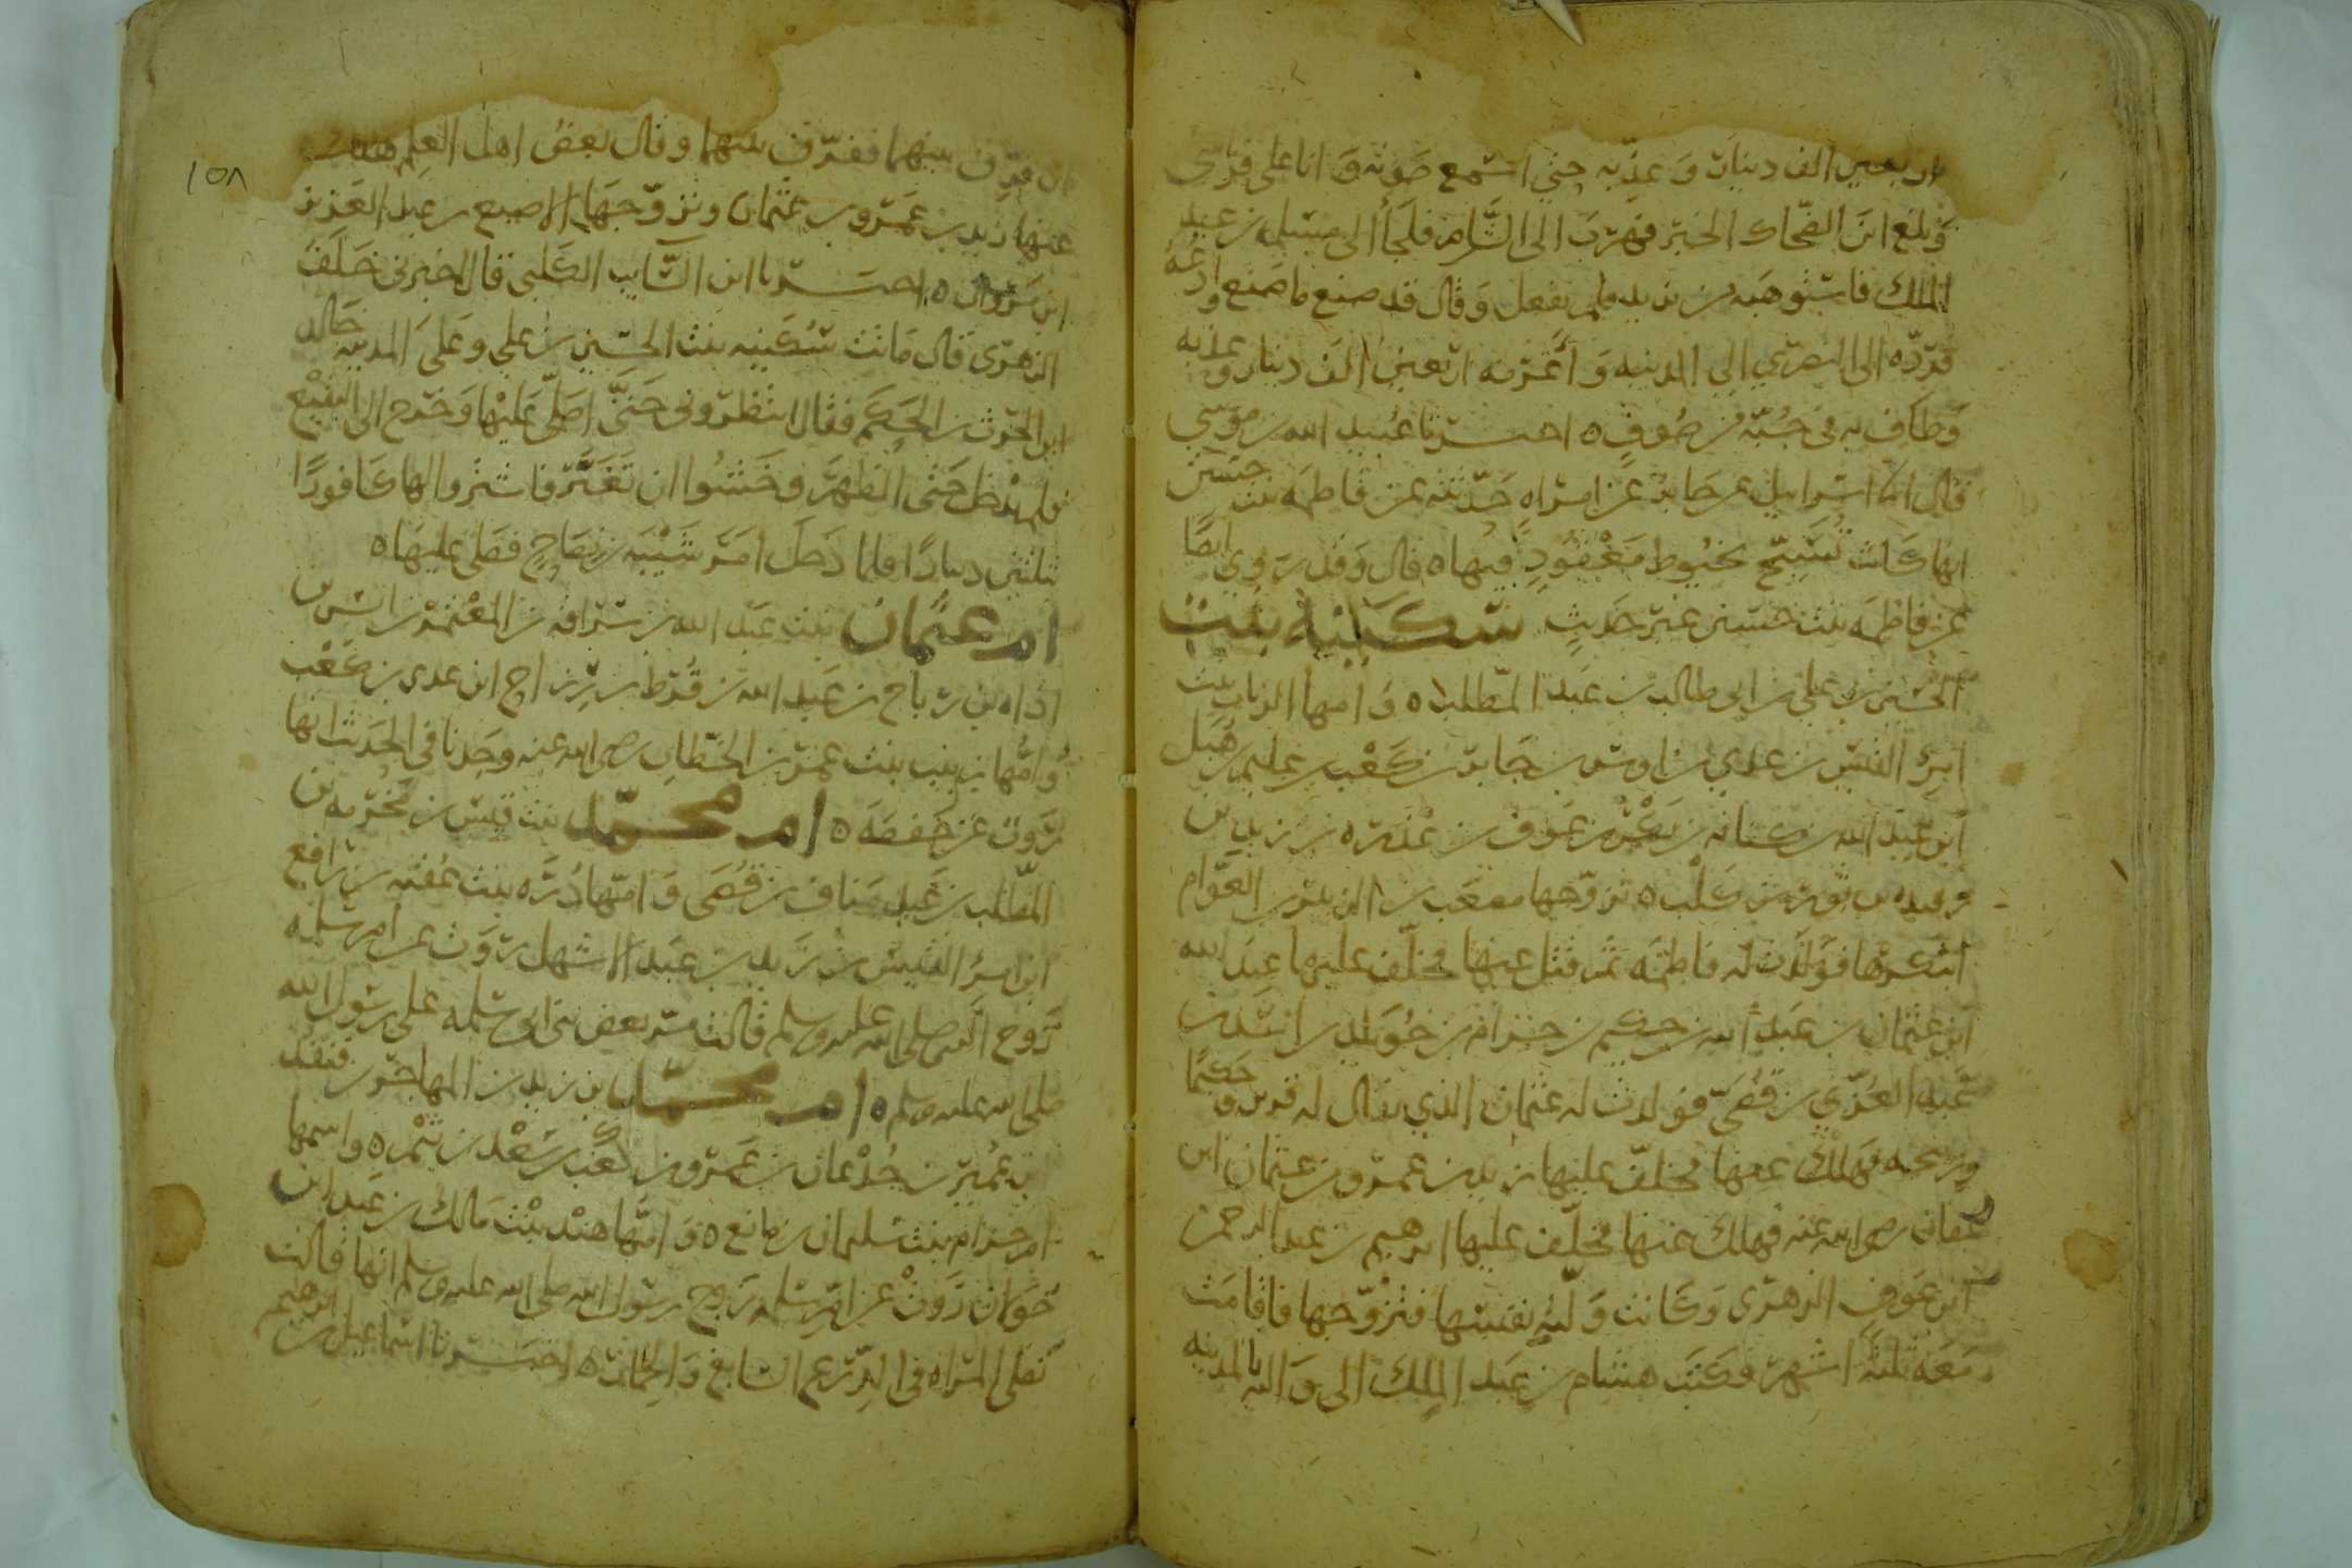 اربعين الف دينار وعذبه حتى اسمع صوته وانا على فراشي
وبلغ ابن الضحاك الخبر فهرب الى الشام فلجأ الى مسلمه بن عبد
الملك فاستوهبه من يزيد فلم يفعل وقال قد صنع ما صنع وادعه
فرده الى النصري الى المدينه واغرمه اربعين الف دينار وعذبه
وطاف به في جبة من صوف ه اخبرنا عبيد الله بن موسى
قال انا اسرائيل عن جابر عن امراه حدثته عن فاطمه بنت حسين
انها كانت تسبح بخيوط معقود فيها ه قال وقد روي ايضا
عن فاطمه بنت حسين غير حديث سكينه بنت
الحسين بن علي بن ابي طالب بن عبد المطلب ه وامها الرباب بنت
امرئ القيس بن عدي بن اوس بن جابر بن كعب بن عليم بن هبل
ابن عبد الله بن كنانه بن بكر بن عوف بن عذره بن زيد بن
رفيده بن ثور بن كلب ه تزوجها مصعب بن الزبير بن العوام
ابتكرها فولدت له فاطمه ثم قتل عنها فخلف عليها عبد الله
ابن عثمان بن عبد الله بن حكيم بن حزام بن خويلد بن اسد بن
عبد العزي بن قصي فولدت له عثمان الذي يقال له قرين وحكيما
وربيحه فهلك عنها فخلف عليها زيد بن عمرو بن عثمان ابن
عفان رضي الله عنه فهلك عنها فخلف عليها ابرهيم بن عبد الرحمن
ابن عوف الزهري وكانت ولته نفسها فتزوجها فاقامت
معه ثلثة اشهر فكتب هشام بن عبد الملك الى واليه بالمدينه
ان فرق بينهما ففرق بينهما وقال بعض اهل العلم هلك
عنها زيد بن عمرو بن عثمان وتزوجها الاصبع بن عبد العزيز
ابن مروان ه اخبرنا ابن السائب الكلبي قال اخبرني خلف
الزهري قال ماتت سكينه بنت الحسين بن علي وعلى المدينه خالد
ابن الحرث بن الحكم فقال انتظروني حتى اصلي عليها وخرج الى البقيع
فلم يدخل حتى الظهر وخشوا ان تغير فاشتروا لها كافورا
بثلثين دينارا فلما دخل امر شيبه بن نصاح فصلى عليها ه
ام عثمان بنت عبد الله بن سراقه بن المعتمر بن انس بن
اذاه بن رباح بن عبد الله بن قرط بن رزاح ابن عدي بن كعب
وامها زينب بنت عمر بن الخطاب رضي الله عنه وجدنا في الحديث انها
روت عن حفصه ه ام محمد بنت قيس بن مخرمه بن
المطلب بن عبد مناف بن قصي وامها دره بنت عقبه بن رافع
ابن امرئ القيس بن زيد بن عبد الاشهل روت عن ام سلمه
زوج النبي صلى الله عليه وسلم قالت مر بعض بني ابي سلمه على رسول الله
صلى الله عليه وسلم ه ام محمد بن زيد بن المهاجر بن قنفذ
بن عمير بن جدعان بن عمرو بن كعب بن سعد بن تيم ه واسمها
ام حرام بنت سليمان بن مانع ه وامها هند بنت مالك بن عبد ابن
خولان روت عن ام سلمه زوج رسول الله صلى الله عليه وسلم انها قالت
تصلى المراه في الدرع السابغ والخمار ه اخبرنا اسماعيل بن ابرهيم
١٥٨